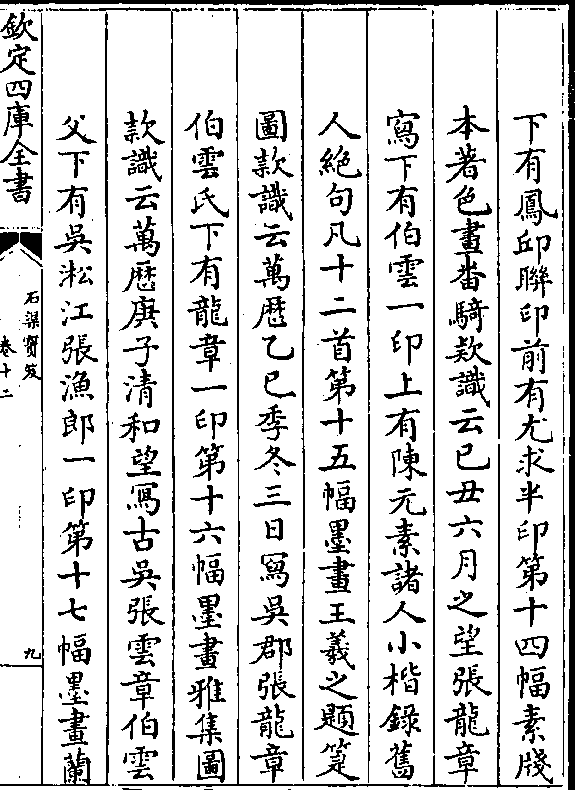 下有鳳邱聯印前有尤求半印第十四幅素牋
本著色畫畨騎款識云已丑六月之望張龍章
寫下有伯雲一印上有陳元素諸人小楷錄舊
人絶句凡十二首第十五幅墨畫王羲之題箑
圖款識云萬歴乙巳季冬三日寫吳郡張龍章
伯雲氏下有龍章一印第十六幅墨畫雅集圖
款識云萬歴庚子清和望寫古吳張雲章伯雲
父下有吳淞江張漁郎一印第十七幅墨畫蘭
欽定四庫全書
石渠寶笈
卷十二
九